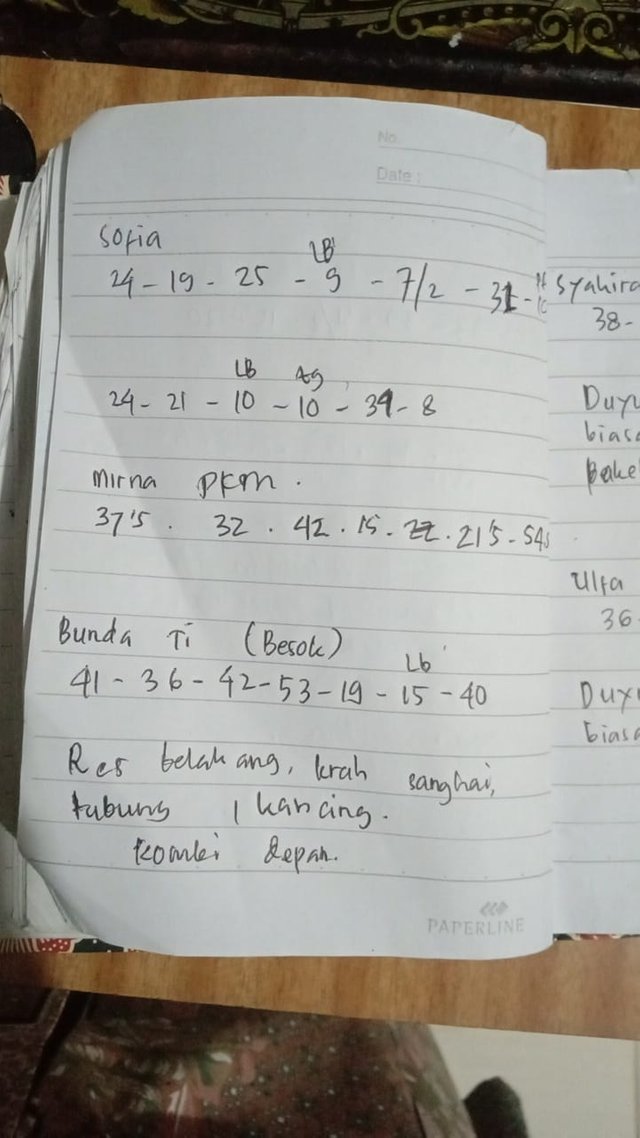 No.
Date :
Sofia
LB
24 - 19 - 25 - 9 - 7/2 - 31 -
LB
24 - 21 - 10 - 10 - 39 - 8
Mirna PKM.
37'5 . 32 . 42 . 15 - 22 . 21'5 - 54
Bunda Ti (Besok)
Lb
41 - 36 - 42 - 53 - 19 - 15 - 40
Res belakang, krah sanghai,
tabung 1 kancing.
depan.
PAPERLINE
Syahira
38 -
biasa
Ulfa
36
biasa